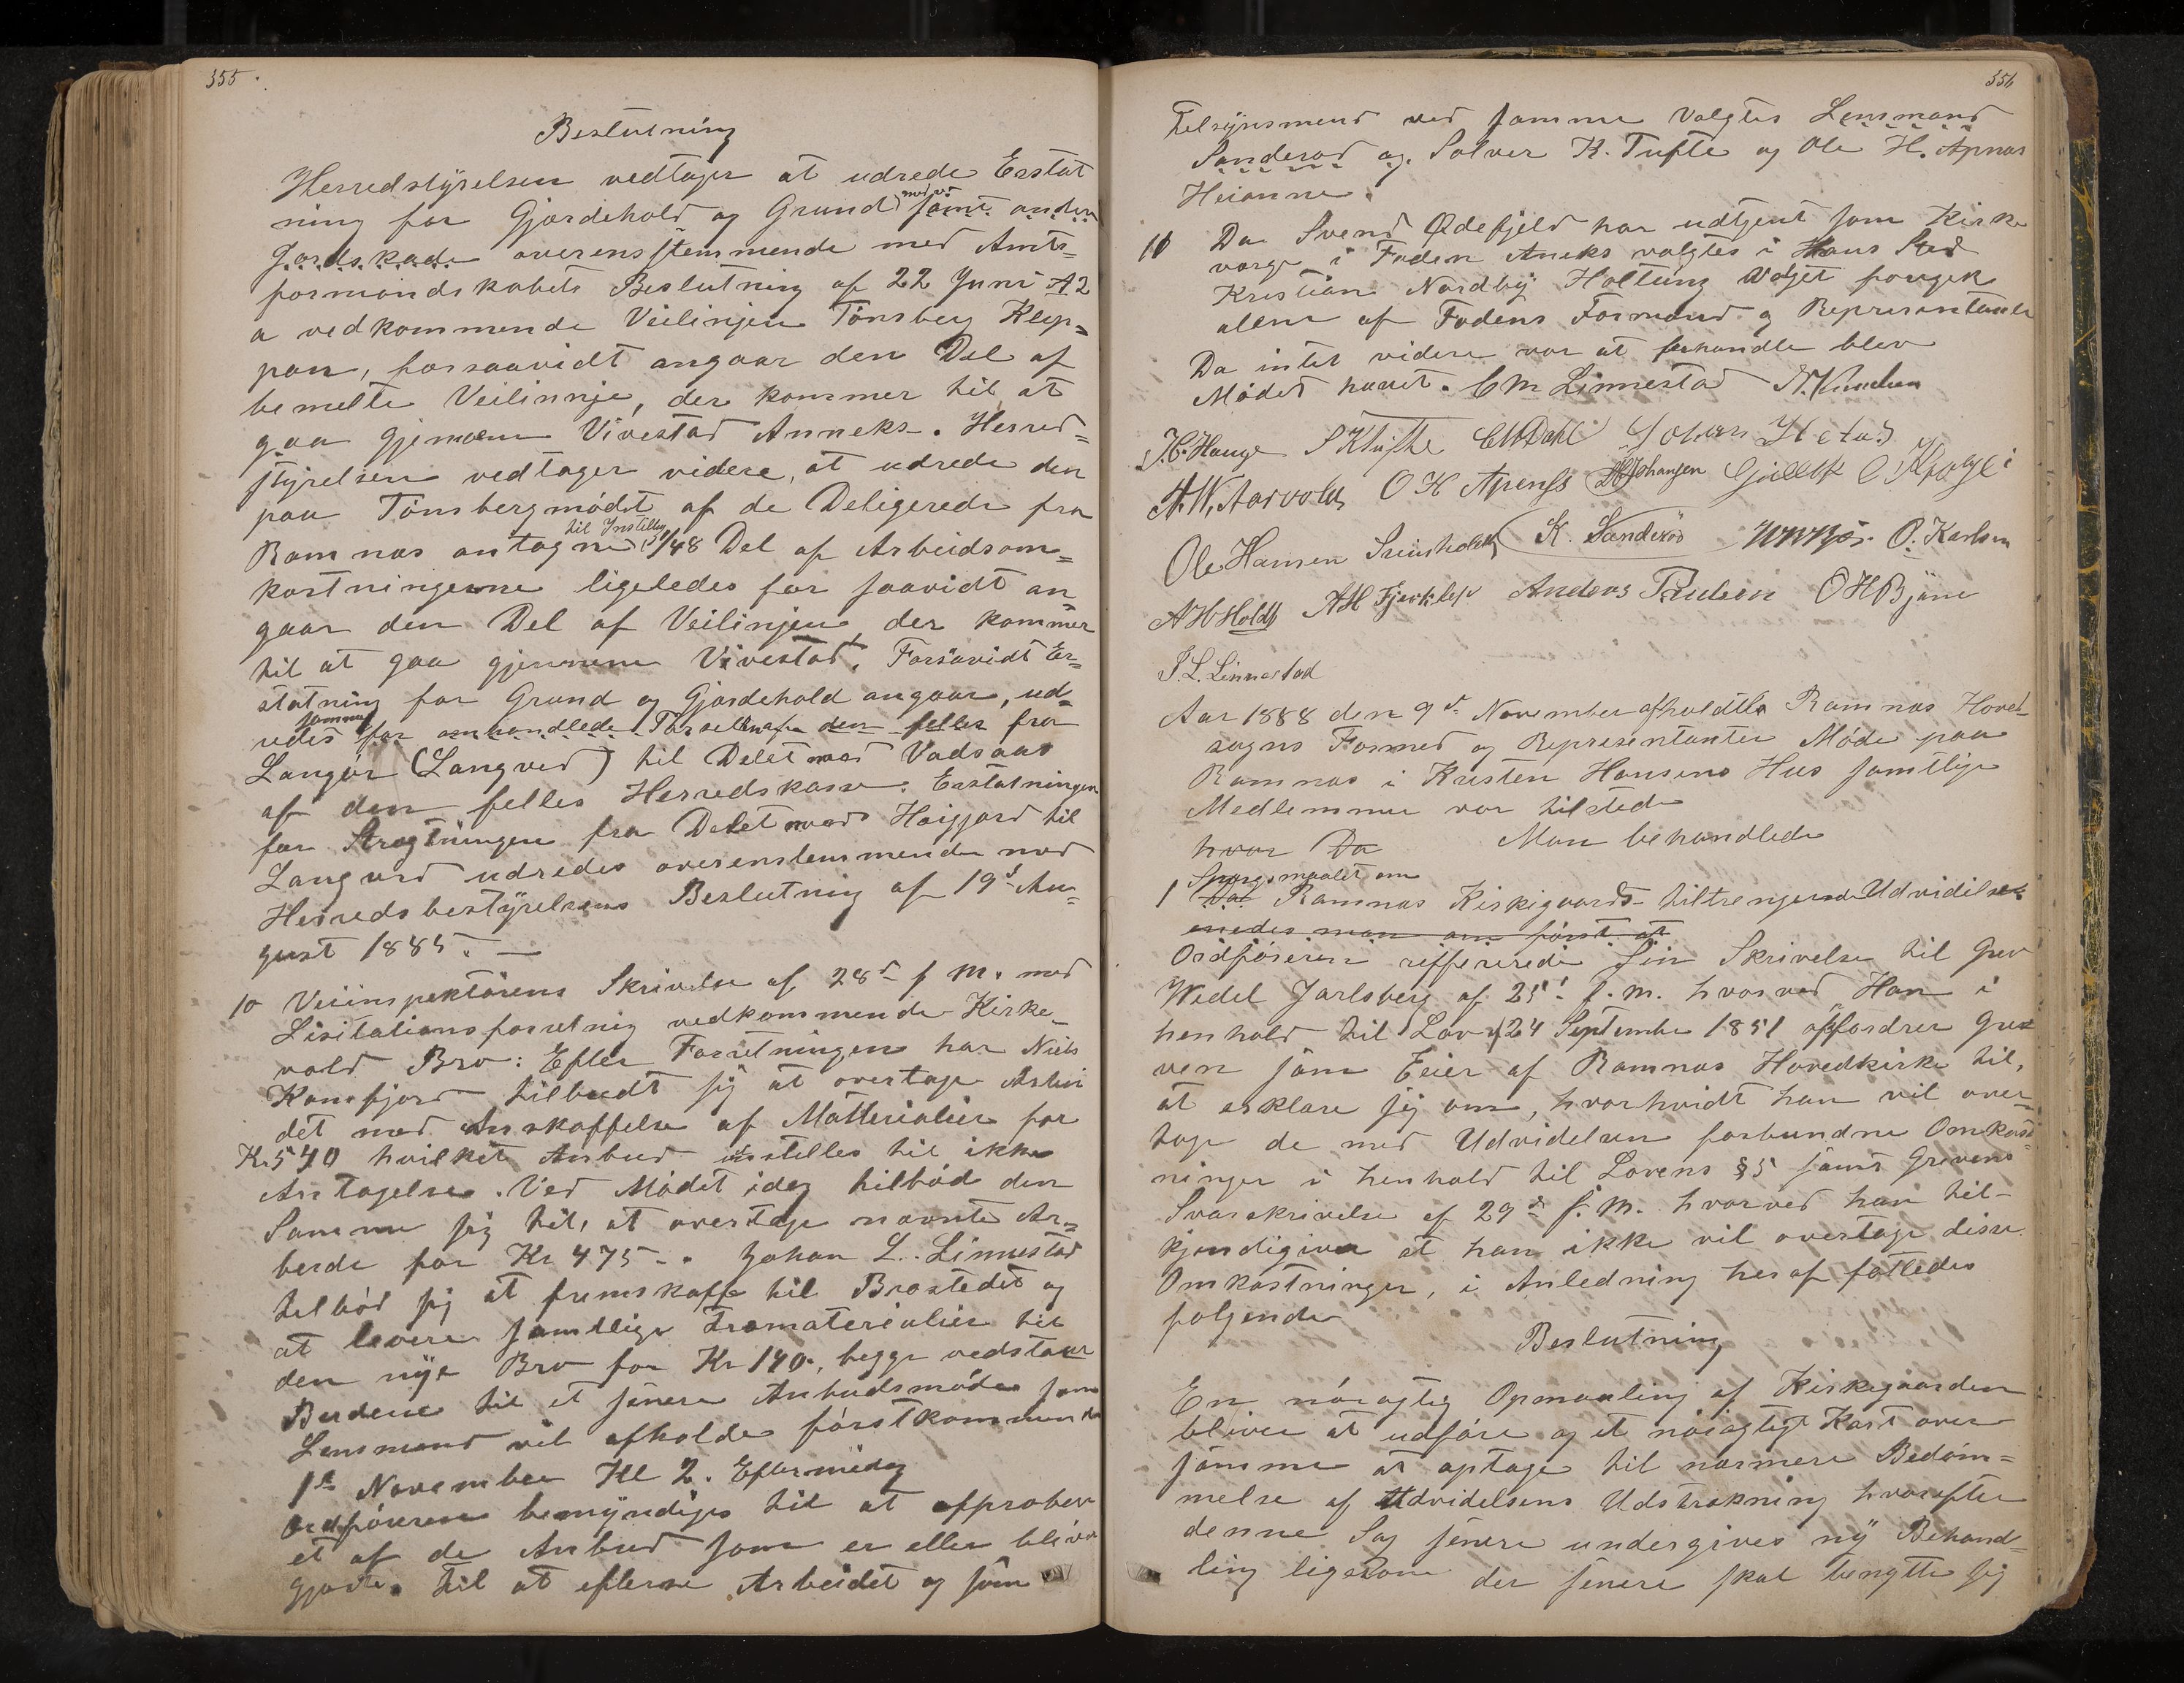 355.
Beslutning
Herredstyrelsen vedtager at udrede Erstat
ning for Gjærdehold og Grund samt anden
Jordskade overensstemmende med Amts=
formandskabets Beslutning af 22 Juni A 2
a vedkommende Veilinjen Tönsberg Klep=
pan, forsaavidt angaar den Del af
bemelte Veilinnje, der kommer til at
gaa gjennem Vivestad Anneks. Herred=
styrelsen vedtager videre, at udrede den
paa Tönsbergmödet af de Deligerede fra
til Instilling
Ramnæs antagne /48 Del af Arbeidsom=
kostningerne ligeledes for saavidt an
gaar den Del af Veilinjen, der kommer
til at gaa gjennem Vivestad. Forsavidt Er=
statning for Grund og Gjærdehold angaar, ud=
samme
redes for omhandlede den felles fra
Langör (Langved) til Delet med Vadsaas
af den felles Herredskasse. Erstatningen
for Strægtningen fra Delet med Haigjord til
Langved udredes overenstemmende med
Herredsbestÿrelsens Beslutning af 19d Au=
gust 1885. —
10 Veiinspektörens Skrivelse af 28d f M. med
Lisitationsforretnig vedkommende Kirke=
vold Bro: Efter Forretningen har Niels
Kamfjord tilbudt sig at overtage Arbei
det med Anskaffelse af Matterialier for
Kr 540 hvilket Anbud instilles til ikke
Antagelse. Ved Mödet idag tilböd den
Samme sig til, at overtage nævnte Ar=
beide for Kr 475 -. Johan L. Linnestad
tilböd sig at fremskaffe til Brostedet og
at levere samtlige Træmaterialier til
den nÿe Bro for Kr 140., begge vedstaar
Budene til et senere Anbudsmöde som
Lensmand vil afholde förstkommende
1st November Kl 2. Eftermidag
Ordföreren bemÿndiges til at approbere
et af de Anbud som er eller bliver
gjorte. til at eflerse Arbeidet og som
356
Tilsÿnsmend ved samme valgtes Lensmand
Sanderöd og Sölver K. Tufte og Ole H. Apnæs
Heianne.
10 Da Svend Ødefjeld har udtjent som Kirke
værge i Foden Aneks valgtes i Hans Sted
Kristian Nordbÿ Holtung Valget foregik
alene af Fodens Formænd og Representanter
Da intet videre var at forhandle blev
Mödet hævet. C M Linnestad N. Knudsen
K. Hauge S K Tufte C M Dahl Johan
A. W. Aarvold O H Apenes Johansen
Ole Hansen K. Sanderöd O. Karlsen
A H Holdt A H Fjerklep Anders Paulsen O H Bjäne
J. L. Linnestad
Aar 1888 den 9d November afholdtes Ramnæs Hoved
sogns Formend og Representanter Möde paa
Ramnæs i Kristen Hansens Hus samtlige
Medlemmer var tilstede
hvor Da Man behandlede
Spørgsmaalet om
1 Ved Ramnæs Kirkigaards tiltrengende Udvidelse
enedes man om först at
Ordföreren refererede sin Skrivelse til Grev
Wedel Jarlsberg af 25d f. M. hvorved Han i
henhold til Lov 24 September 1851 opfordrer Gre
ven som Eier af Ramnæs Hovedkirke til,
at erklære sig om, hvorhvidt han vil over=
tage de med Udvidelsen forbundne Omkost
ninger i henhold til Lovens § 5 samt Grevens
Svarskrivelse af 29d f. M. hvorved han til-
kjendigiver at han ikke vil overtage disse
Omkostninger, i Anledning heraf fattedes
følgende
Beslutning
En nöiagtig Opmaaling af Kirkegaarden
bliver at udföre og et nöiagtigt Kart over
samme at optage til nærmere Bedöm=
melse af Udvidelsens Udstrækning hvorefter
denne Sag senere undergives nÿ Behand=
ling ligesom der senere skal benytte sig